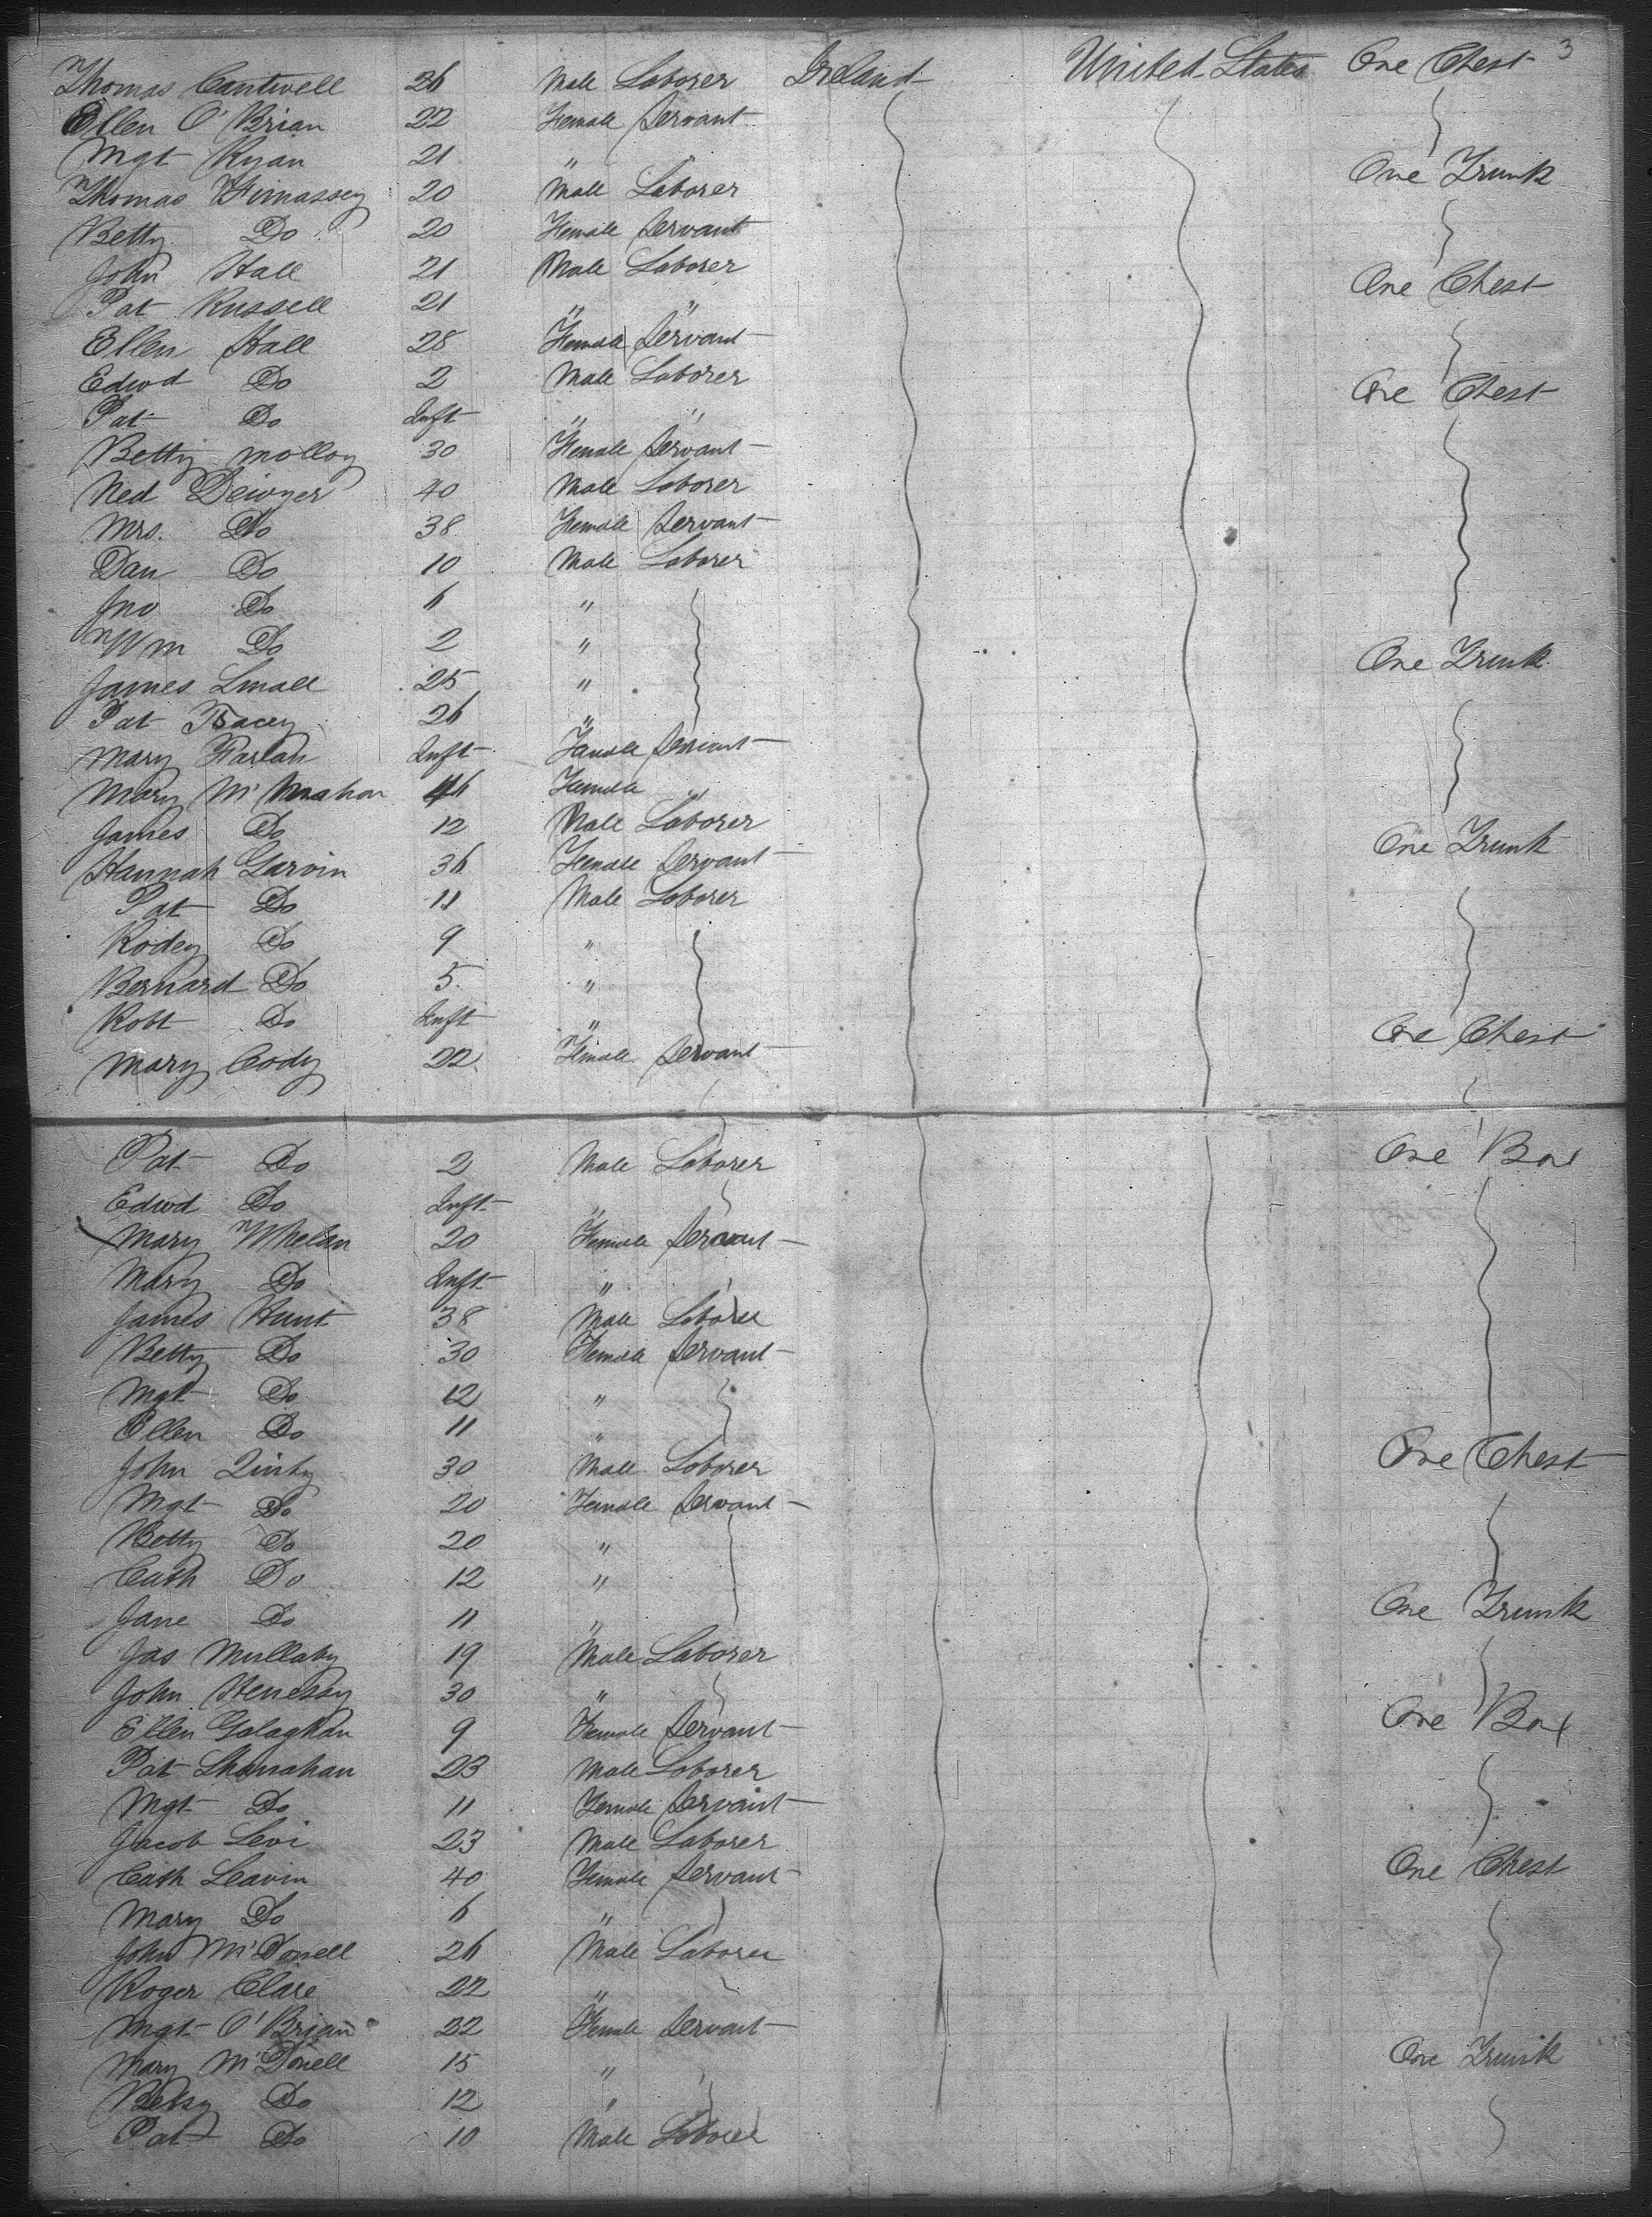 3
Thomas Cantwell 26 Male Laborer Ireland United States One Chest
Ellen O'Brian 22 Female Servant
Mgt Ryan 21 " " One Trunk
Thomas 20 Male Laborer
Betty Do 20 Female Servant
John Hall 21 Male Laborer One Chest
Pat Russell 21 " "
Ellen Hall 28 Female Servant
Edwd Do 2 Male Laborer One Chest
Pat Do Inft " "
Betty Molloy 30 Female Servant
Ned Dewyer 40 Male Laborer
Mrs. Do 38 Female Servant
Dan Do 10 Male Laborer
Jno Do 6 "
Wm Do 2 " One Trunk
James Small 25 "
Pat Tracey 26 "
Mary Inft Female Servant
Mary McMahon 46 Female "
James Do 12 Male Laborer One Trunk
Hannah Garvin 36 Female Servant
Pat Do 11 Male Laborer
Rodey Do 9 "
Bernard Do 5 "
Robt Do Inft " One Chest
Mary Cody 22 Female Servant
Pat Do 2 Male Laborer One Box
Edwd Do Inft "
Mary Whelan 20 Female Servant
Mary Do Inft "
James Hunt 38 Male Laborer
Betty Do 30 Female Servant
Mgt Do 12 "
Ellen Do 11 " One Chest
John 30 Male Laborer
Mgt Do 20 Female Servant
Betty Do 20 "
Cath Do 12 "
Jane Do 11 " One Trunk
Jas Mullaby 19 Male Laborer
John Henessy 30 "
Ellen Galaghan 9 Female Servant One Box
Pat Shanahan 23 Male Laborer
Mgt Do 11 Female Servant
Jacob Levi 23 Male Laborer
Cath Leavin 40 Female Servant One Chest
Mary Do 6 "
John McDonell 26 Male Laborer
Roger Clare 22 "
Mgt O'Brian 22 Female Servant
Mary McDonell 15 " One Trunk
Betsy Do 12 "
Pat Do 10 Male Laborer